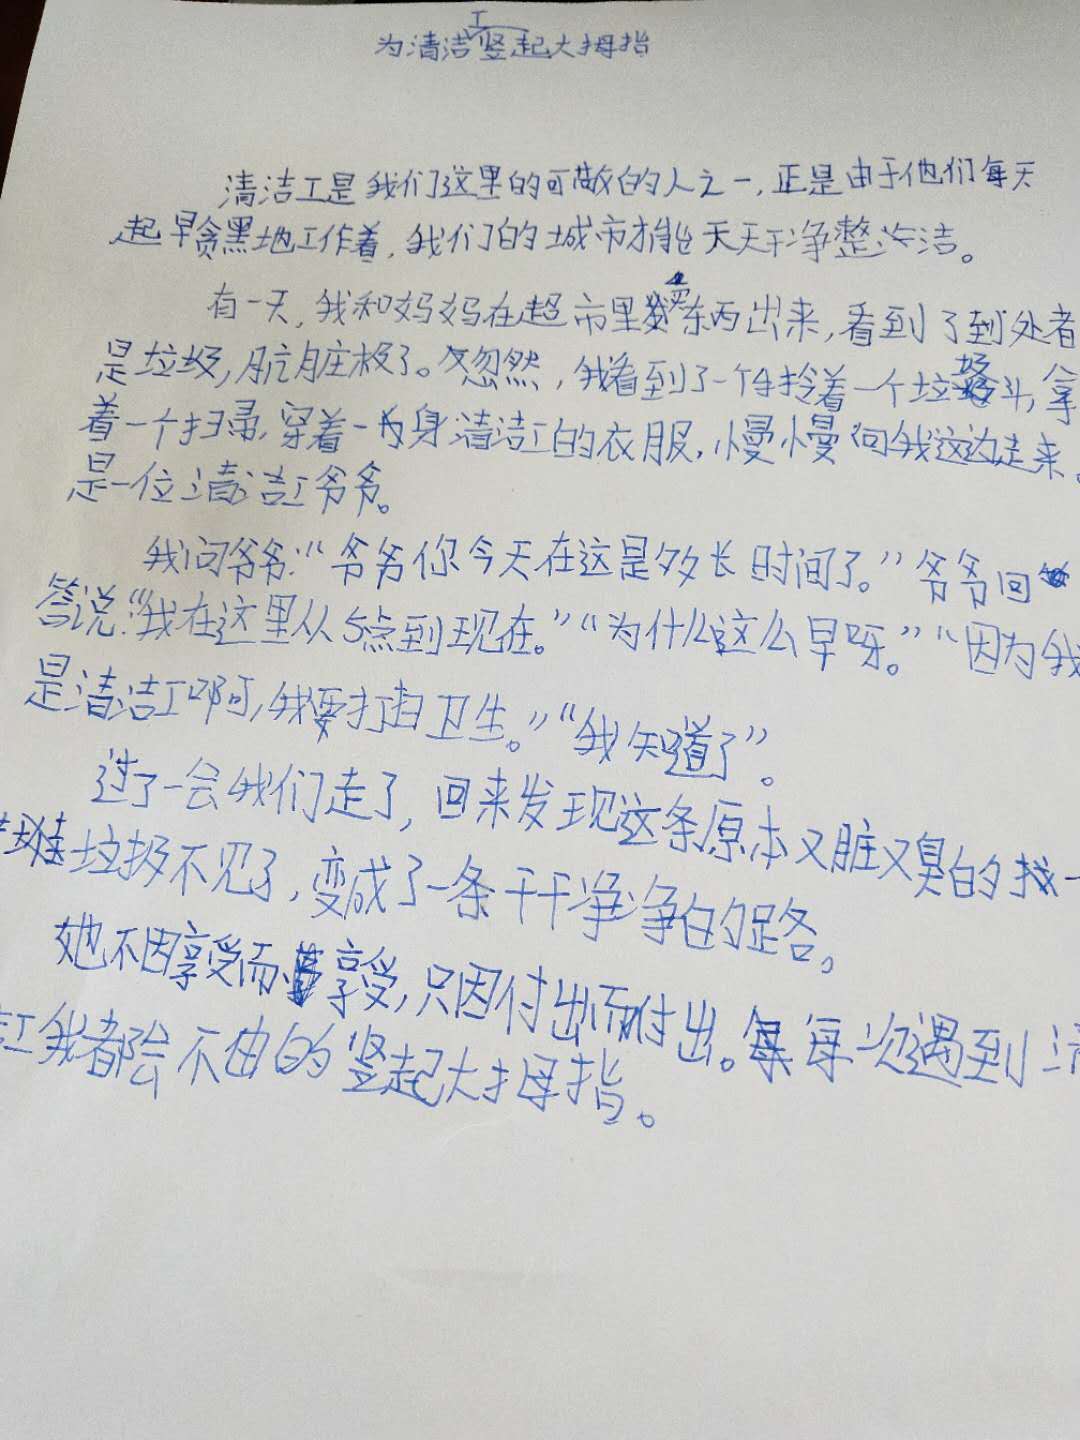 为清洁工竖起大拇指
清洁工是我们这里的可敬的人之一,正是由于他们每天
起早贪黑地工作着,我们的城市才能天天干净整洁。
有一天,我和妈妈在超市里买东西出来,看到了到处者
是垃圾,肮脏极了。忽然,我看到了一个拎着一个垃圾斗,拿
着一个扫帚,穿着一身清洁工的衣服,慢慢向我这边走来。
是一位清洁工爷爷。
我问爷爷:“爷爷你今天在这是多长时间了。”爷爷回
答说:“我在这里从5点到现在。”“为什么这么早呀。”“因为我
是清洁工啊,我要打扫卫生。”“我知道了”。
过了一会我们走了,回来发现这条原本又脏又臭的
堆垃圾不见了,变成了一条干干净净的路。
她不因享受而享受,只因付出而付出。每次遇到清
工我都会不由的竖起大拇指。